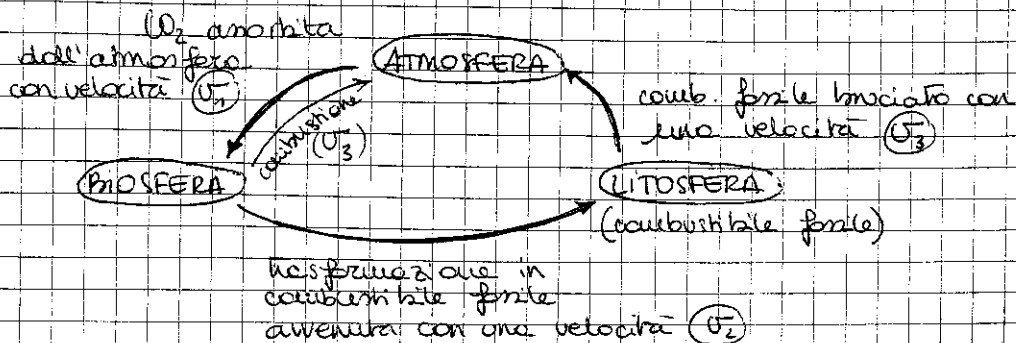 CO₂ assorbita
dall'atmosfera
con velocità v₁
ATMOSFERA
combustione
(v₃)
comb. fossile bruciato con
una velocità v₃
BIOSFERA
LITOSFERA
(combustibile fossile)
trasformazione in
combustibile fossile
avvenuta con una velocità v₂